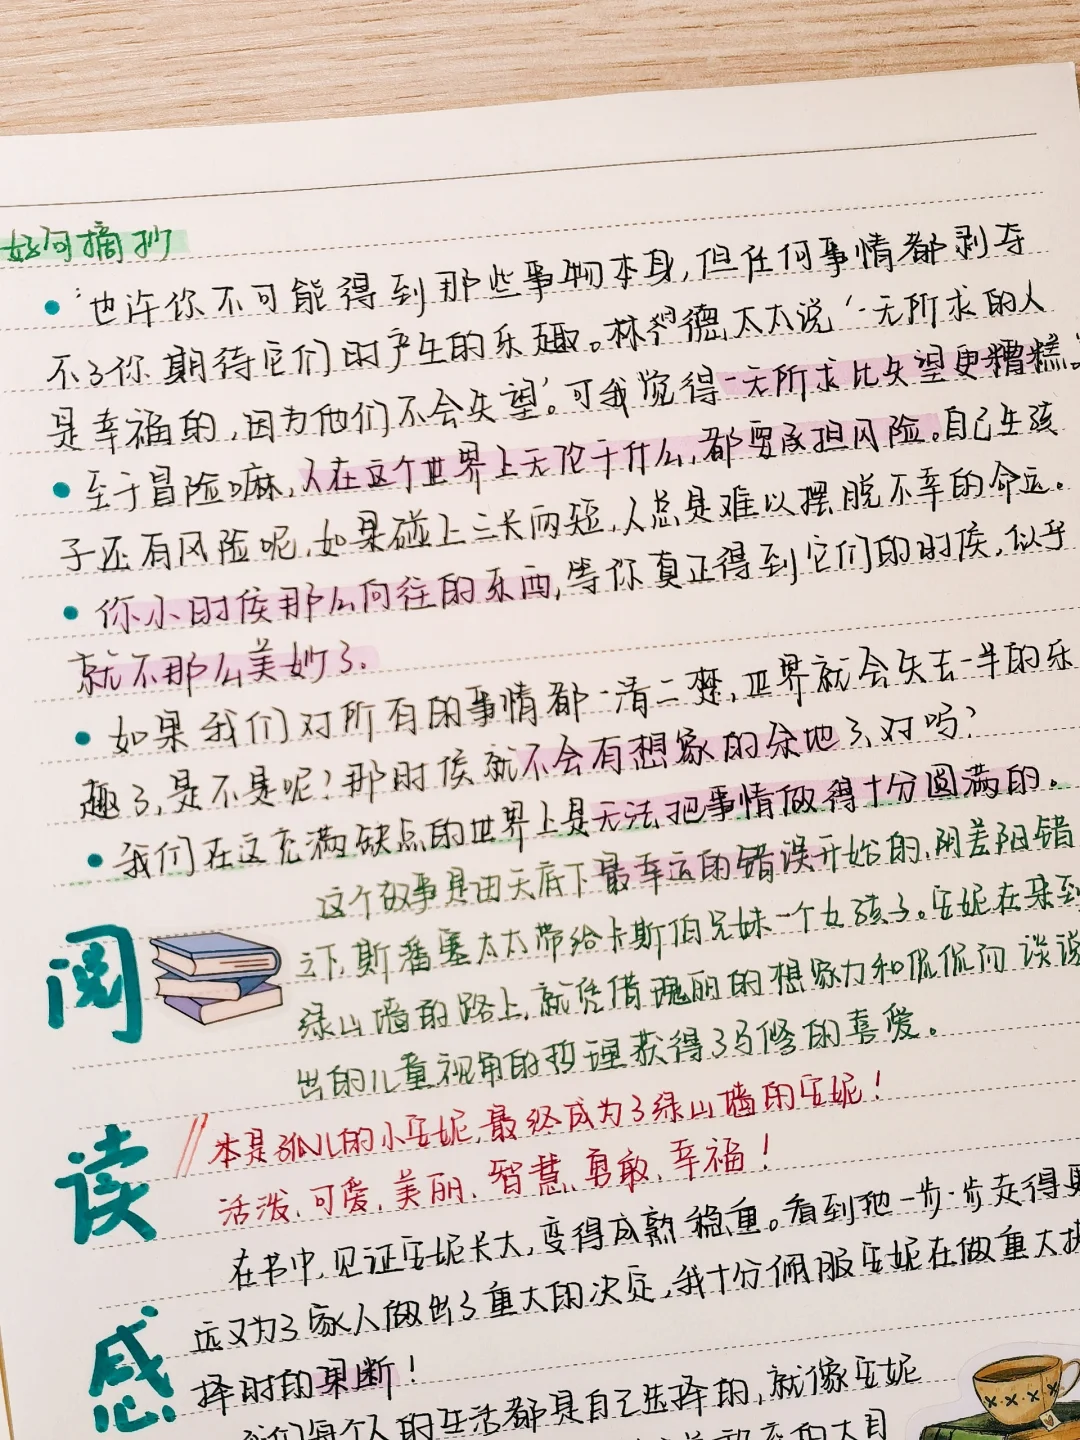 好句摘抄
“也许你不可能得到那些事物本身,但任何事情都剥夺
不了你期待它们时产生的乐趣。林德太太说‘一无所求的人
是幸福的,因为他们不会失望’。可我觉得一无所求比失望更糟糕。”
至于冒险嘛,人在这个世界上无论干什么,都要承担风险。自己生孩
子还有风险呢,如果碰上三长两短,人总是难以摆脱不幸的命运。
你小时侯那么向往的东西,等你真正得到它们的时侯,似乎
就不那么美妙了.
如果我们对所有的事情都一清二楚,世界就会失去一半的乐
趣了,是不是呢?那时侯就不会有想象的余地了、对吗?
我们在这充满缺点的世界上是无法把事情做得十分圆满的。
这个故事是由天底下最幸运的错误开始的,阴差阳错
之下,斯潘塞太太带给卡斯伯兄妹一个女孩子。安妮在来到
绿山墙的路上,就凭借瑰丽的想象力和侃侃而谈说
出的儿童视角的哲理获得了马修的喜爱。
本是孤儿的小安妮,最终成为了绿山墙的安妮!
活泼、可爱、美丽、智慧、勇敢、幸福!
在书中,见证安妮长大,变得成熟稳重。看到她一步步走得更
远又为了家人做出了重大的决定,我十分佩服安妮在做重大抉
择时的果断!
我们每个人的生活都是自己选择的,就像安妮
的大目
阅
读
感